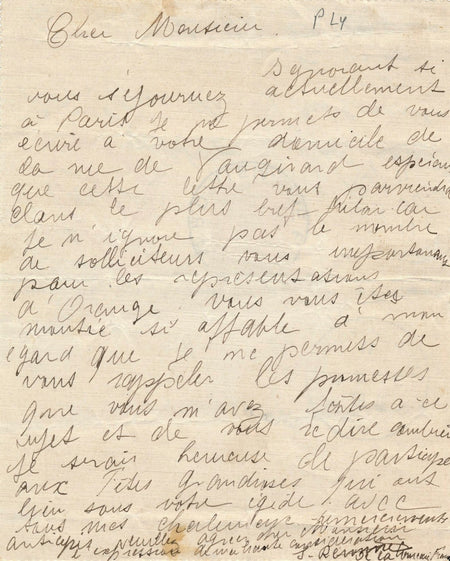 Cher Monsieur. P Ly
Ignorant si
vous séjournez actuellement
à Paris je me permets de vous
écrire à votre domicile de
la rue de Vaugirard espérant
que cette lettre vous parviendra
dans le plus bref délai car
je n'ignore pas le nombre
de solliciteurs vous importunant
pour les représentations
d'Orange vous vous êtes
montré si affable à mon
égard que je me permets de
vous rappeler les promesses
que vous m'avez faites à ce
sujet et de vous redire combien
je serais heureuse de participer
aux fêtes grandioses qui ont
lieu sous votre égide avec
tous mes chaleureux remerciements
anticipés veuillez agréer cher Monsieur
l'expression de ma haute considération
S.